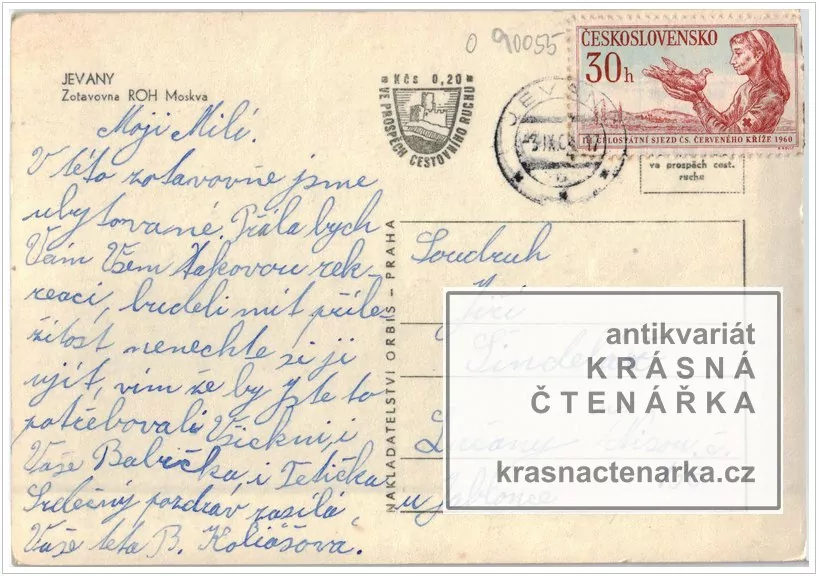 0 90055
ČESKOSLOVENSKO
30h
CELOSTÁTNÍ SJEZD ČS. ČERVENÉHO KŘÍŽE 1960
JEVANY
Zotavovna ROH Moskva
Kčs 0,20
VE PROSPĚCH CESTOVNÍHO RUCHU
JEVANY
ve prospěch cest.
ruchu
Moji Milí.
V této zotavovně jsme
ubytované. Přála bych
Vám Všem takovou rek-
reaci, budeli mít příle-
žitost nenechte si ji
ujít, vím že by jste to
potřebovali Všickni, i
Vaše Babička, i Tetička
Srdečný pozdrav zasílá
Vaše teta B. Koliášova.
NAKLADATELSTVÍ ORBIS – PRAHA
Soudruh
Jiří
u Jablonce
antikvariát
KRÁSNÁ
ČTENÁŘKA
krasnactenarka.cz